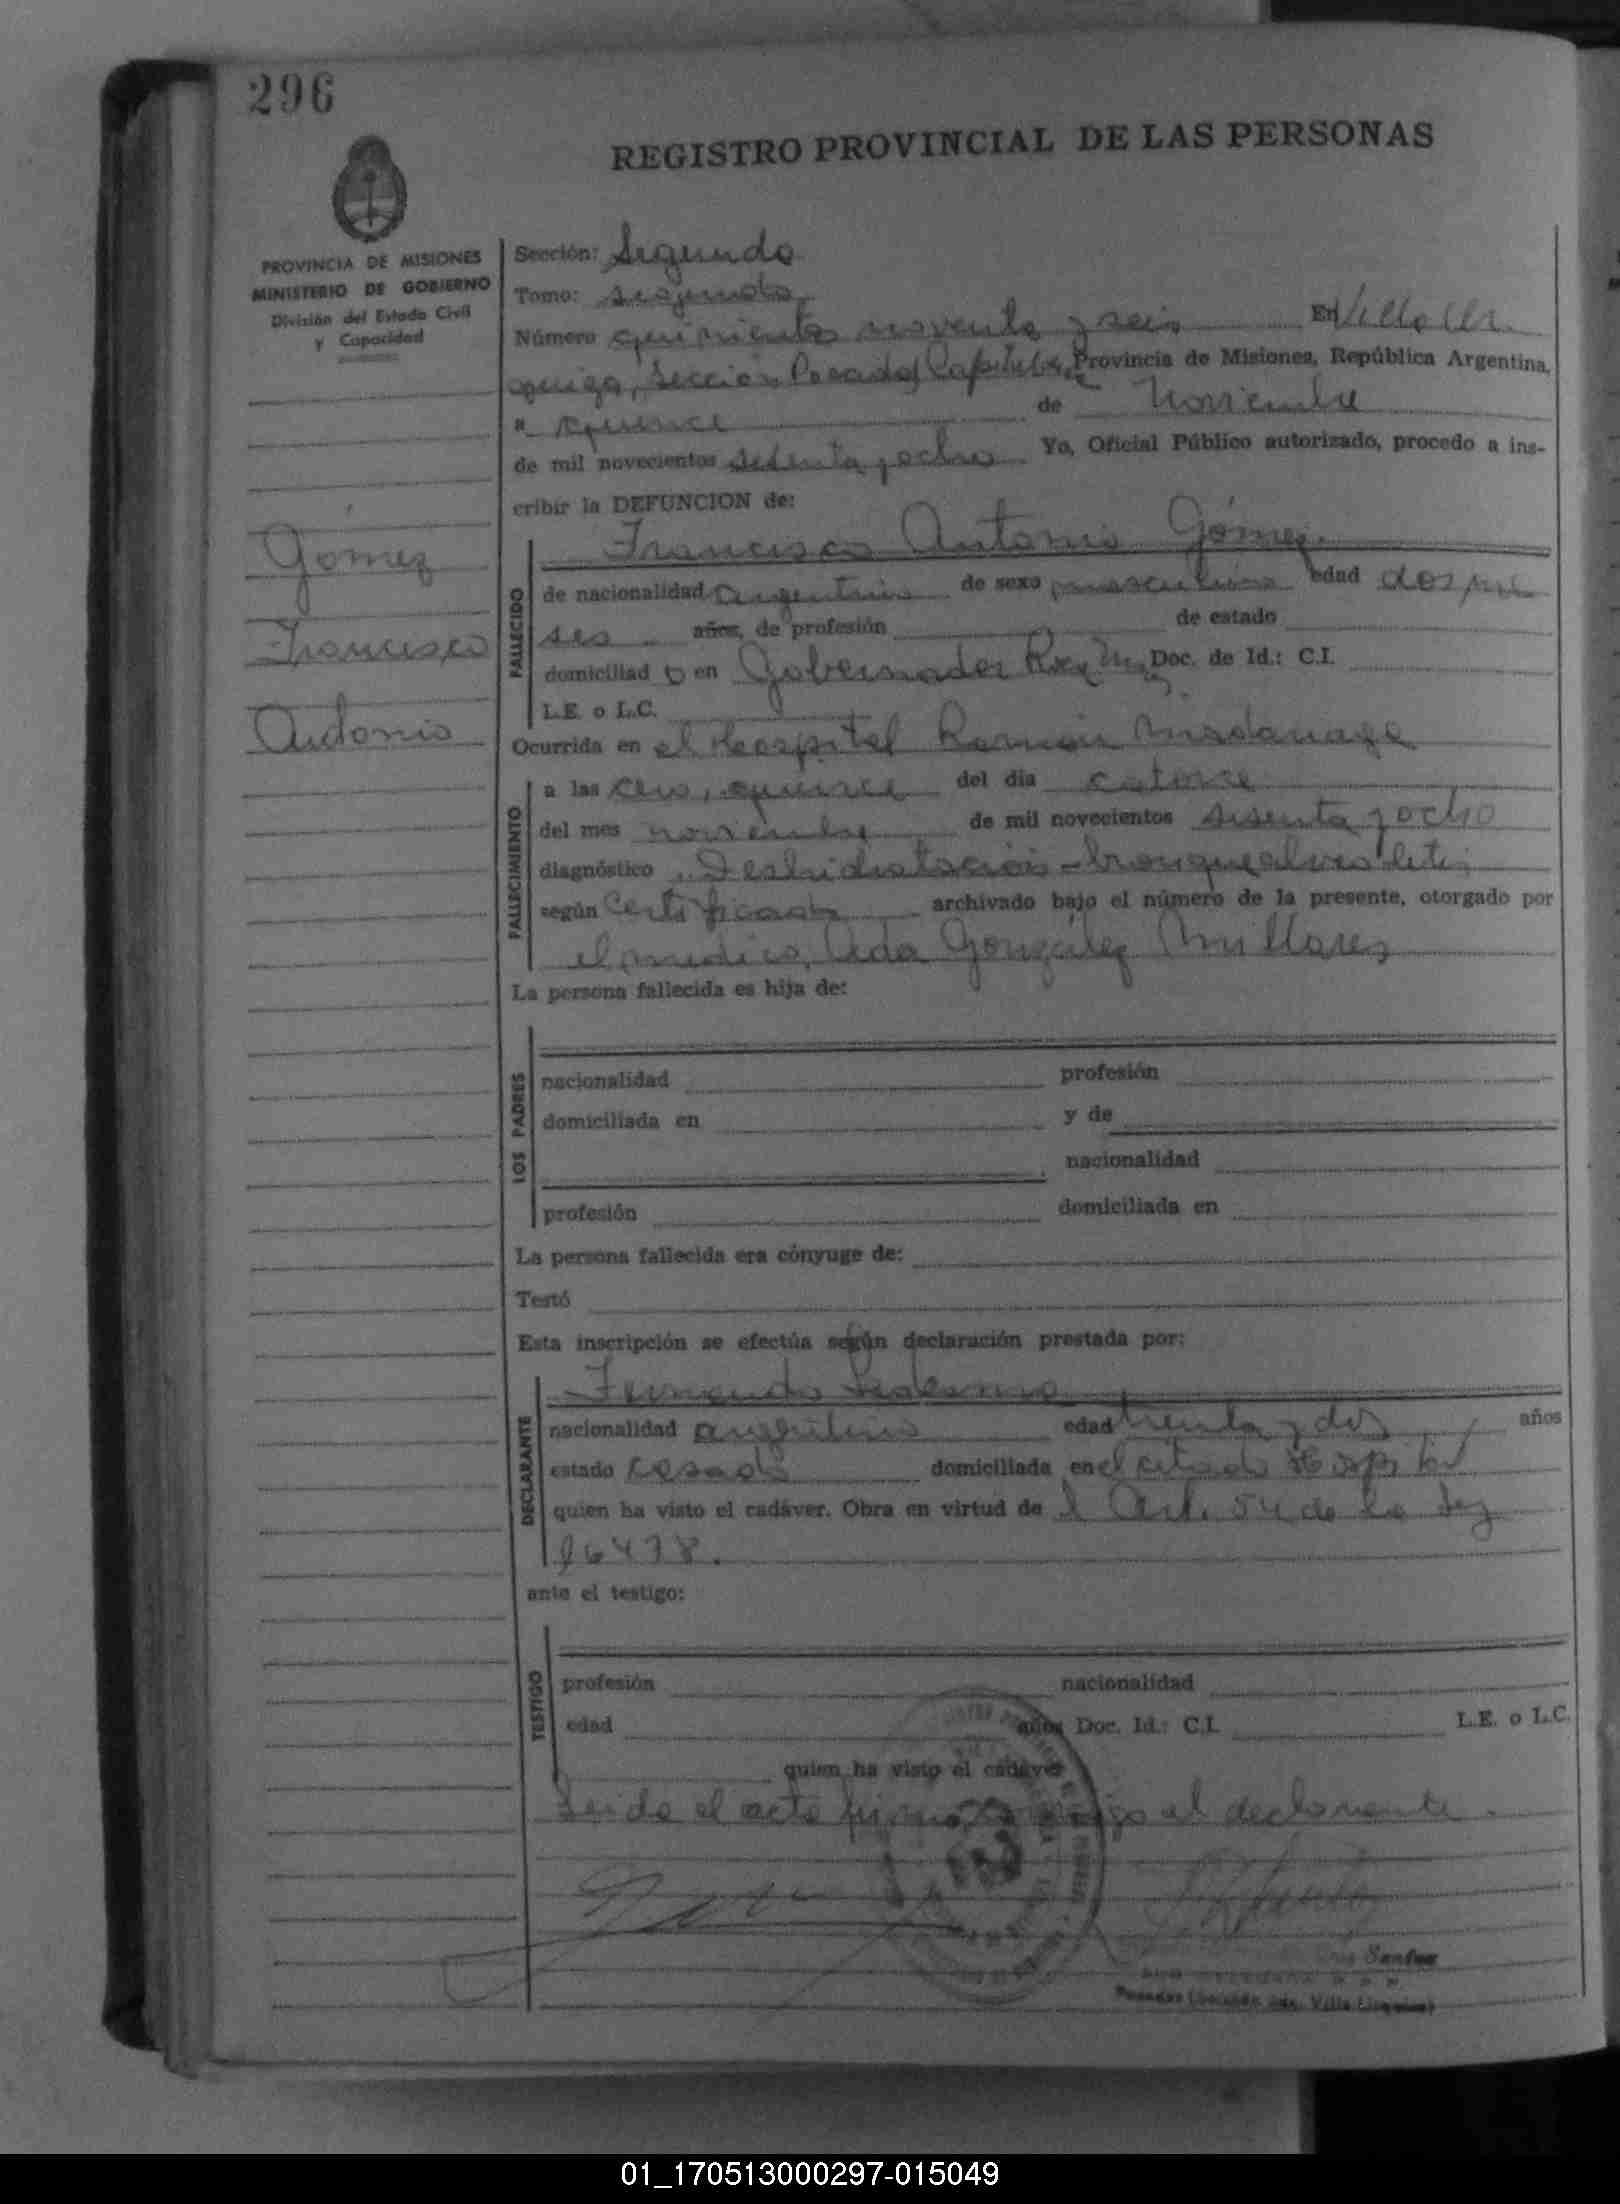 296
REGISTRO PROVINCIAL DE LAS PERSONAS
PROVINCIA DE MISIONES
MINISTERIO DE GOBIERNO
División del Estado Civil
y Capacidad
Gómez
Francisco
Antonio
Sección: Segunda
Tomo: segundo
Número quinientos noventa y seis En Villa Ur
quiza, Sección Posadas Capital, Provincia de Misiones, República Argentina,
a quince de Noviembre
de mil novecientos sesenta y ocho Yo, Oficial Público autorizado, procedo a ins-
cribir la DEFUNCION de:
Francisco Antonio Gómez.
FALLECIDO
de nacionalidad argentino de sexo masculino edad dos me
ses años, de profesión de estado
domiciliad o en Gobernador Doc. de Id.: C.I.
L.E. o L.C.
Ocurrida en el Hospital Ramón Madariaga
FALLECIMIENTO
a las cero, quince del día catorce
del mes noviembre de mil novecientos sesenta y ocho
diagnóstico Deshidratación -
según certificado archivado bajo el número de la presente, otorgado por
el médico, Ada González Millares
La persona fallecida es hija de:
LOS PADRES
nacionalidad profesión
domiciliada en y de
nacionalidad
profesión domiciliada en
La persona fallecida era cónyuge de:
Testó
Esta inscripción se efectúa según declaración prestada por:
DECLARANTE
Fernando Ledesma
nacionalidad argentino edad treinta y dos años
estado casado domiciliada en el citado Hospital
quien ha visto el cadáver. Obra en virtud de l Art. 54 de la Ley
16478.
ante el testigo:
TESTIGO
profesión nacionalidad
edad años Doc. Id.: C.I. L.E. o L.C.
quien ha visto el cadáver
Leida el acta firma conmigo el declarante.
Santos
Posadas (Segunda Villa Urquiza)
01_170513000297-015049